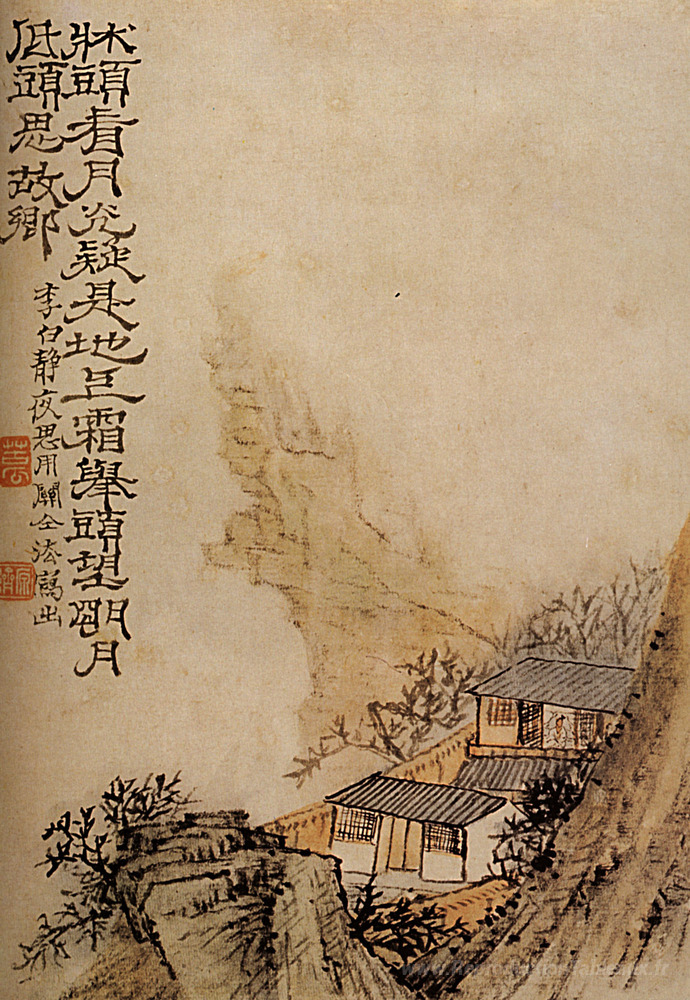 牀頭看月光疑是地上霜舉頭望明月
低頭思故鄉
李白静夜思用關仝法寫出